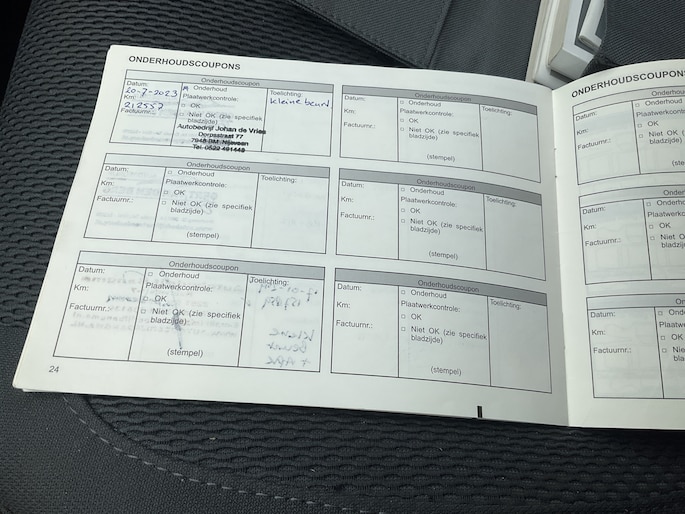 ONDERHOUDSCOUPONS
Onderhoudscoupon
Datum:
20-7-2023
Km:
212557
Factuurnr.:
Onderhoud
Plaatwerkcontrole:
OK
Niet OK (zie specifiek
bladzijde)
Toelichting:
kleine beurt
Autobedrijf Johan de Vries
Dorpsstraat 77
7948 BM Nijeveen
Tel. 0522 491449
Onderhoudscoupon
Datum:
Km:
Factuurnr.:
Onderhoud
Plaatwerkcontrole:
OK
Niet OK (zie specifiek
bladzijde)
(stempel)
Toelichting:
Onderhoudscoupon
Datum:
Km:
Factuurnr.:
Onderhoud
Plaatwerkcontrole:
OK
Niet OK (zie specifiek
bladzijde)
(stempel)
Toelichting:
Onderhoudscoupon
Datum:
Km:
Factuurnr.:
Onderhoud
Plaatwerkcontrole:
OK
Niet OK (zie specifiek
bladzijde)
(stempel)
Toelichting:
Onderhoudscoupon
Datum:
Km:
Factuurnr.:
Onderhoud
Plaatwerkcontrole:
OK
Niet OK (zie specifiek
bladzijde):
(stempel)
Toelichting:
Onderhoudscoupon
Datum:
Km:
Factuurnr.:
Onderhoud
Plaatwerkcontrole:
OK
Niet OK (zie specifiek
bladzijde)
(stempel)
Toelichting:
24
ONDERHOUDSCOUPONS
Datum:
Km:
Factuurnr.:
OK
Niet
Datum:
Km:
Factuurnr.:
OK
Niet
Datum:
Km:
Factuurnr.:
OK